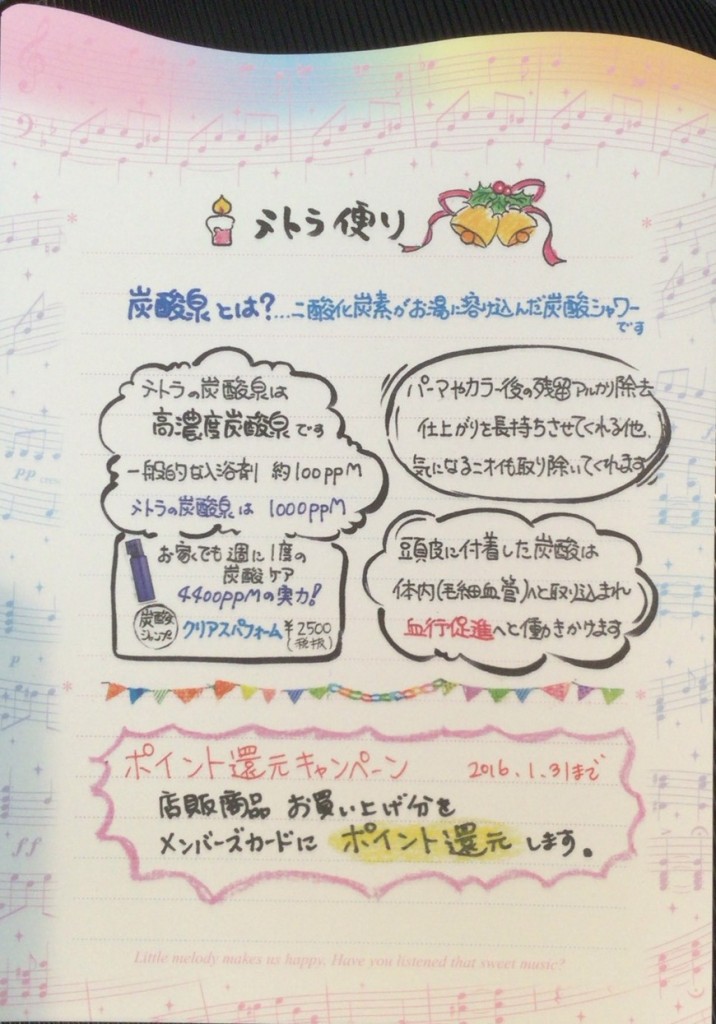 テトラ便り
炭酸泉とは?...二酸化炭素がお湯に溶け込んだ炭酸シャワー
です
テトラの炭酸泉は
高濃度炭酸泉です
一般的な入浴剤 約100ppM
テトラの炭酸泉は 1000ppM
パーマやカラー後の残留アルカリ除去
仕上がりを長持ちさせてくれる他、
気になるニオイも取り除いてくれます
お家でも週に1度の
炭酸ケア
4400ppMの実力!
炭酸
シャンプー
クリアスパフォーム ¥2500
(税抜)
頭皮に付着した炭酸は
体内(毛細血管)へと取り込まれ
血行促進へと働きかけます
ポイント還元キャンペーン 2016.1.31まで
店販商品 お買い上げ分を
メンバーズカードに ポイント還元します。
Little melody makes us happy. Have you listened that sweet music?